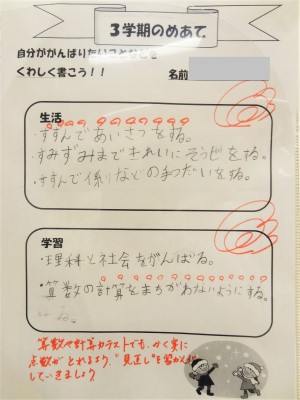 3学期のめあて
自分ががんばりたいことなどを
くわしく書こう！！
名前
生活
・すすんであいさつをする。
・すみずみまできれいにそうじをする。
・すすんで係りなどの手つだいをする。
学習
・理科と社会をがんばる。
・算数の計算をまちがわないようにする。
算数や計算力テストでも、かく実に
点数がとれるよう、"見直し"を
していきましょう